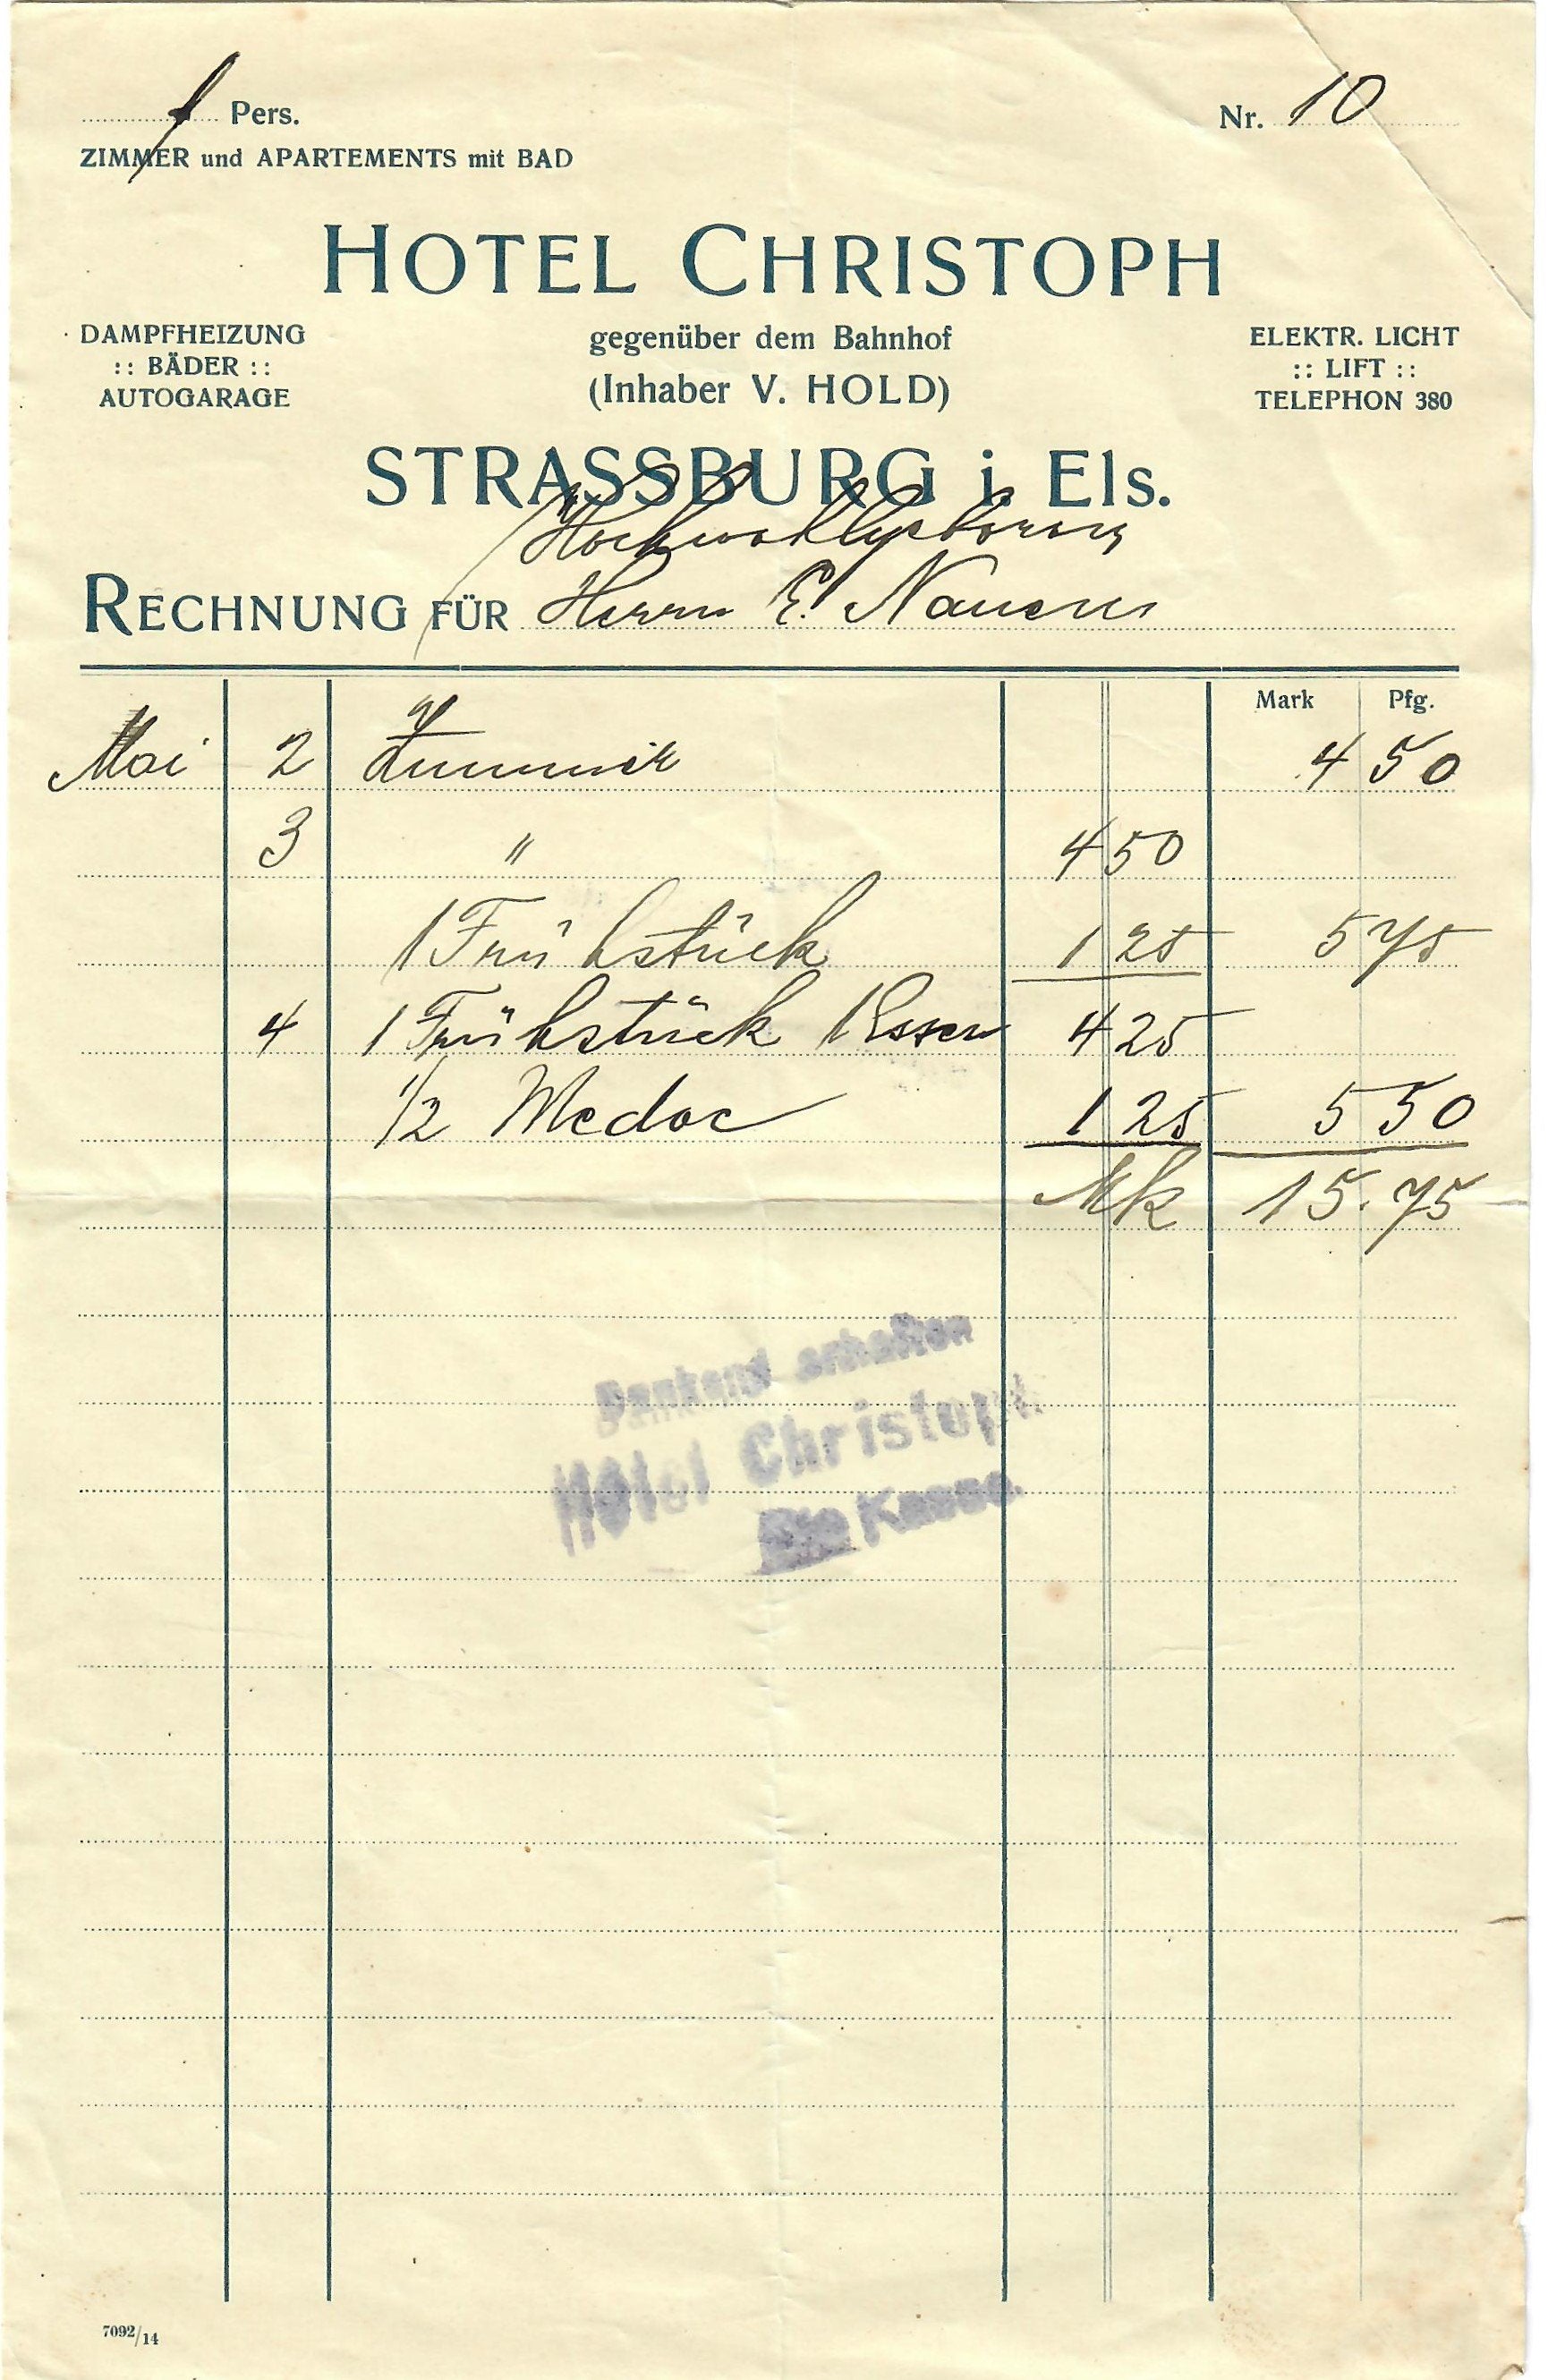 1 Pers.
Nr. 10
ZIMMER und APARTEMENTS mit BAD
HOTEL CHRISTOPH
DAMPFHEIZUNG
:: BÄDER ::
AUTOGARAGE
gegenüber dem Bahnhof
(Inhaber V. HOLD)
ELEKTR. LICHT
:: LIFT ::
TELEPHON 380
STRASSBURG i. Els.
Hochwohlgeboren
RECHNUNG FÜR Herrn E. Nauen
Mark Pfg.
Mai 2 Zimmer 4 50
3 " 4 50
1 Frühstück 1 25 5 75
4 1 Frühstück 1 Essen 4 25
1/2 Medoc 1 25 5 50
Mk 15.75
Dankend erhalten
Hôtel Christoph
Die Kasse.
7092/14